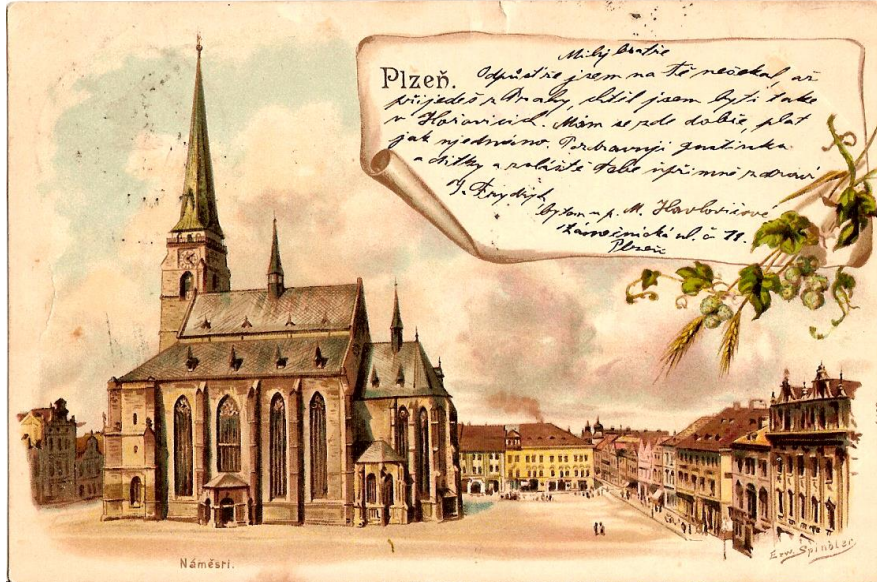 Plzeň.
Milý bratře
Odpusť že jsem na Tě nečekal až
přijedeš z Prahy, chtěl jsem býti také
v Hořovicích. Mám se zde dobře, plat
jak ujednáno. Pozdravuji
a dítky a zvláště Tebe upřímně
J. Frydrych
bytem u p. M. Havlovičové
ul. č.
Plzeň
Náměstí.
Erw. Spindler